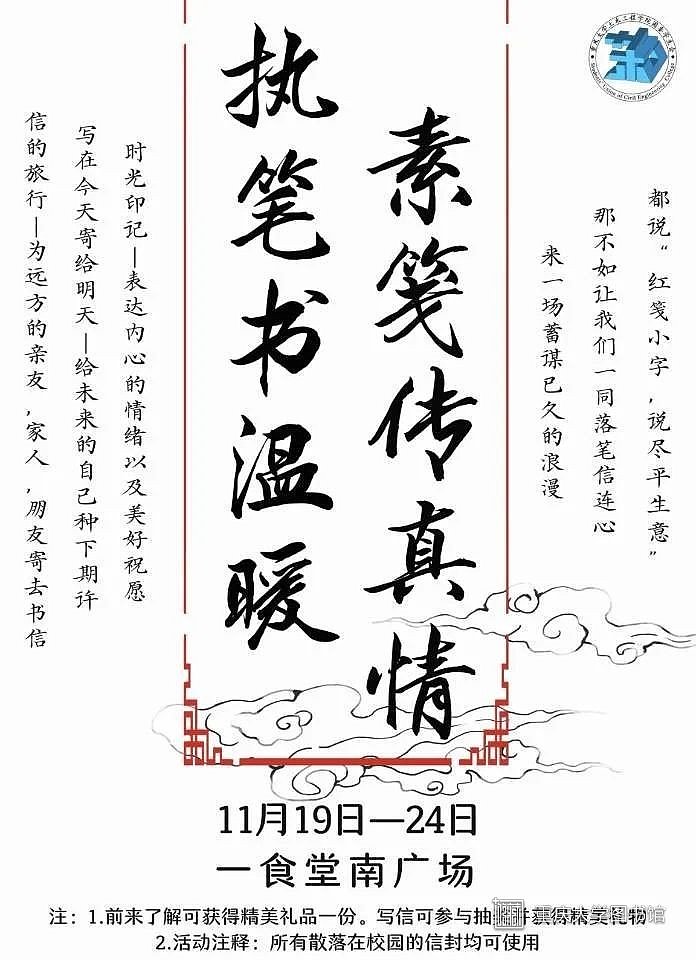 素笺传真情
执笔书温暖
都说“红笺小字,说尽平生意”
那不如让我们一同落笔信连心
来一场蓄谋已久的浪漫
时光印记—表达内心的情绪以及美好祝愿
写在今天寄给明天—给未来的自己种下期许
信的旅行—为远方的亲友,家人,朋友寄去书信
11月19日—24日
一食堂南广场
注：1.前来了解可获得精美礼品一份。写信可参与抽奖并获得精美礼物
2.活动注释：所有散落在校园的信封均可使用
重庆大学图书馆
Students' Union of Civil Engineering College